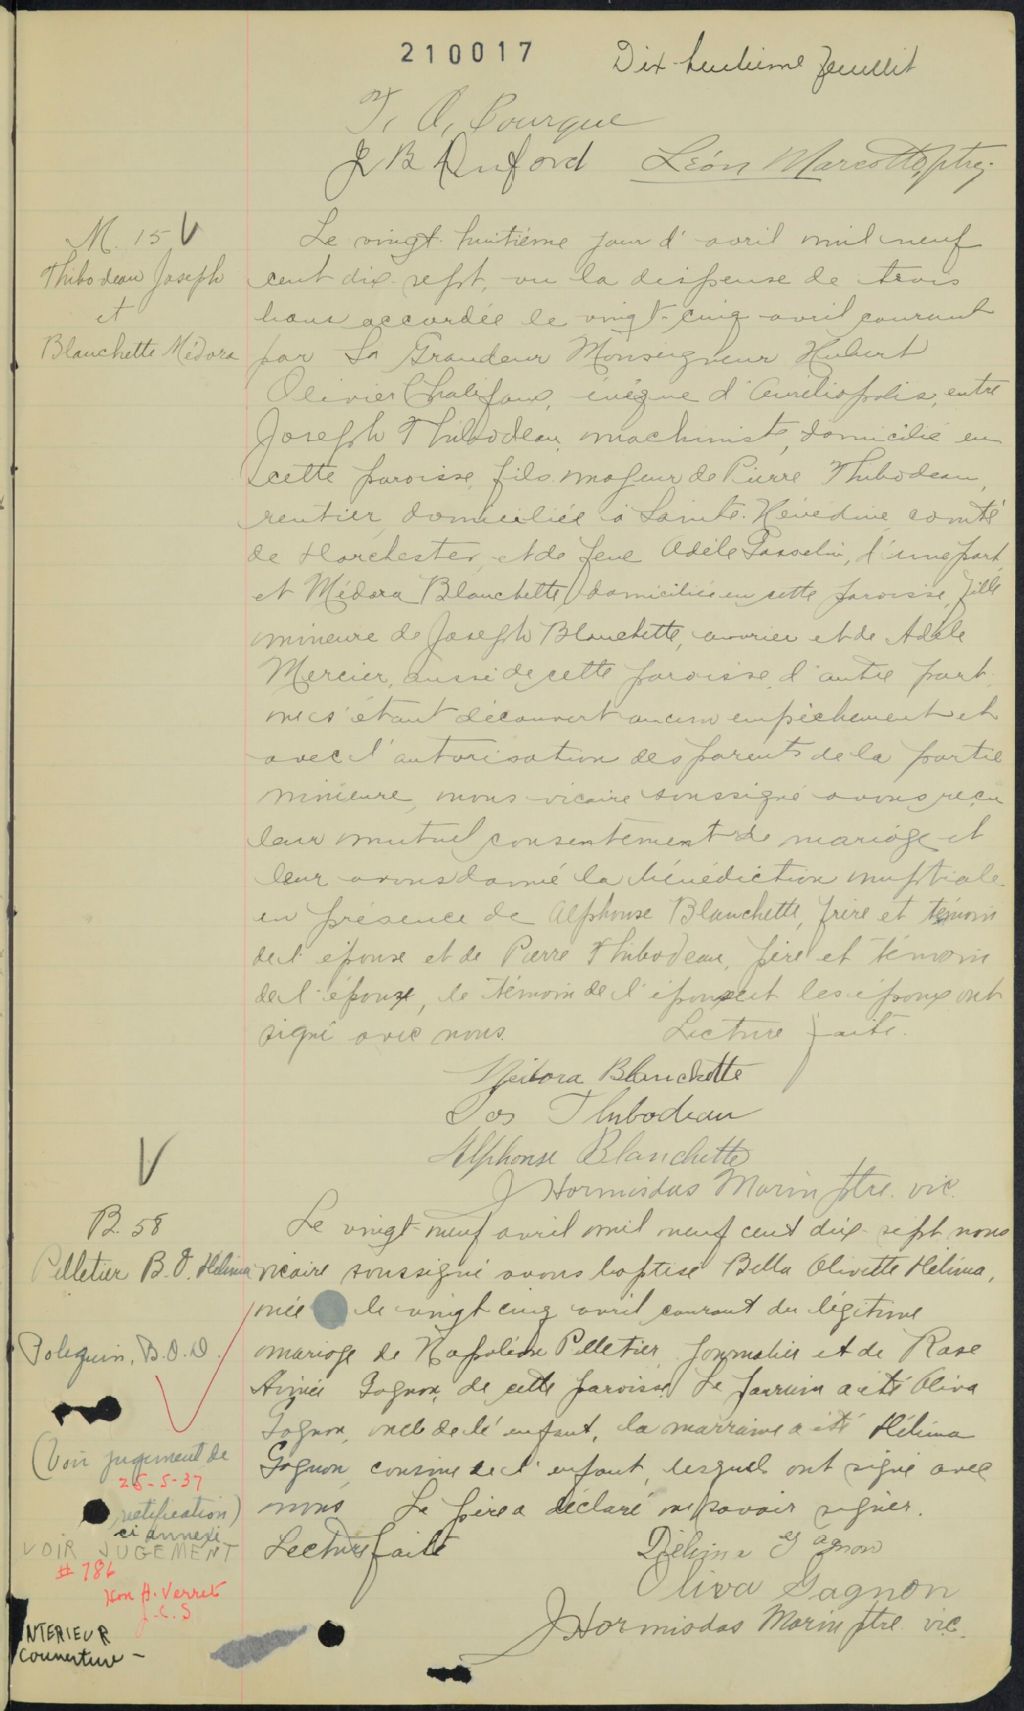 210017
Dix-huitième feuillet
T. A. Bourque
J B Duford Léon Marcotte, ptre.
M. 15 V
Thibodeau Joseph
et
Blanchette Médora
Le vingt-huitième jour d'avril mil neuf
cent dix-sept, vu la dispense de trois
bans accordée le vingt-cinq avril courant
par Sa Grandeur Monseigneur Hubert
Olivier Chalifoux, évêque d'Auréliopolis, entre
Joseph Thibodeau, machiniste, domicilié en
cette paroisse, fils majeur de Pierre Thibodeau,
rentier, domiciliée à Sainte-Hénédine, comté
de Dorchester, et de feue Adèle Gosselin, d'une part,
et Médora Blanchette, domiciliée en cette paroisse, fille
mineure de Joseph Blanchette, ouvrier et de Adèle
Mercier, aussi de cette paroisse, d'autre part.
ne s'étant découvert aucun empêchement et
avec l'autorisation des parents de la partie
mineure, nous vicaire soussigné avons reçu
leur mutuel consentement de mariage et
leur avons donné la bénédiction nuptiale
en présence de Alphonse Blanchette, frère et témoin
de l'épouse et de Pierre Thibodeau, père et témoin
de l'époux, le témoin de l'épouse et les époux ont
signé avec nous. Lecture faite.
Médora Blanchette
Jos Thibodeau
Alphonse Blanchette
J Hormisdas Morin ptre. vic.
V
B. 58
Pelletier B. O. Hélima
Le vingt-neuf avril mil neuf cent dix-sept nous
vicaire soussigné avons baptisé Bella Olivette Hélima,
née le vingt cinq avril courant du légitime
mariage de Napoléon Pelletier, journalier et de Rose
Aimée Gagnon, de cette paroisse. Le parrain a été Oliva
Gagnon, oncle de l'enfant, la marraine a été Hélima
Gagnon, cousine de l'enfant, lesquels ont signé avec
nous. Le père a déclaré ne savoir signer.
Lecture faite
Délima Gagnon
Oliva Gagnon
J Hormisdas Morin ptre. vic.
Poliquin, B. O. D.
(Voir jugement de
25-5-37
rectification)
ci annexé
VOIR JUGEMENT
# 786
Hon A. Verret
J. C. S
INTERIEUR
Couverture -